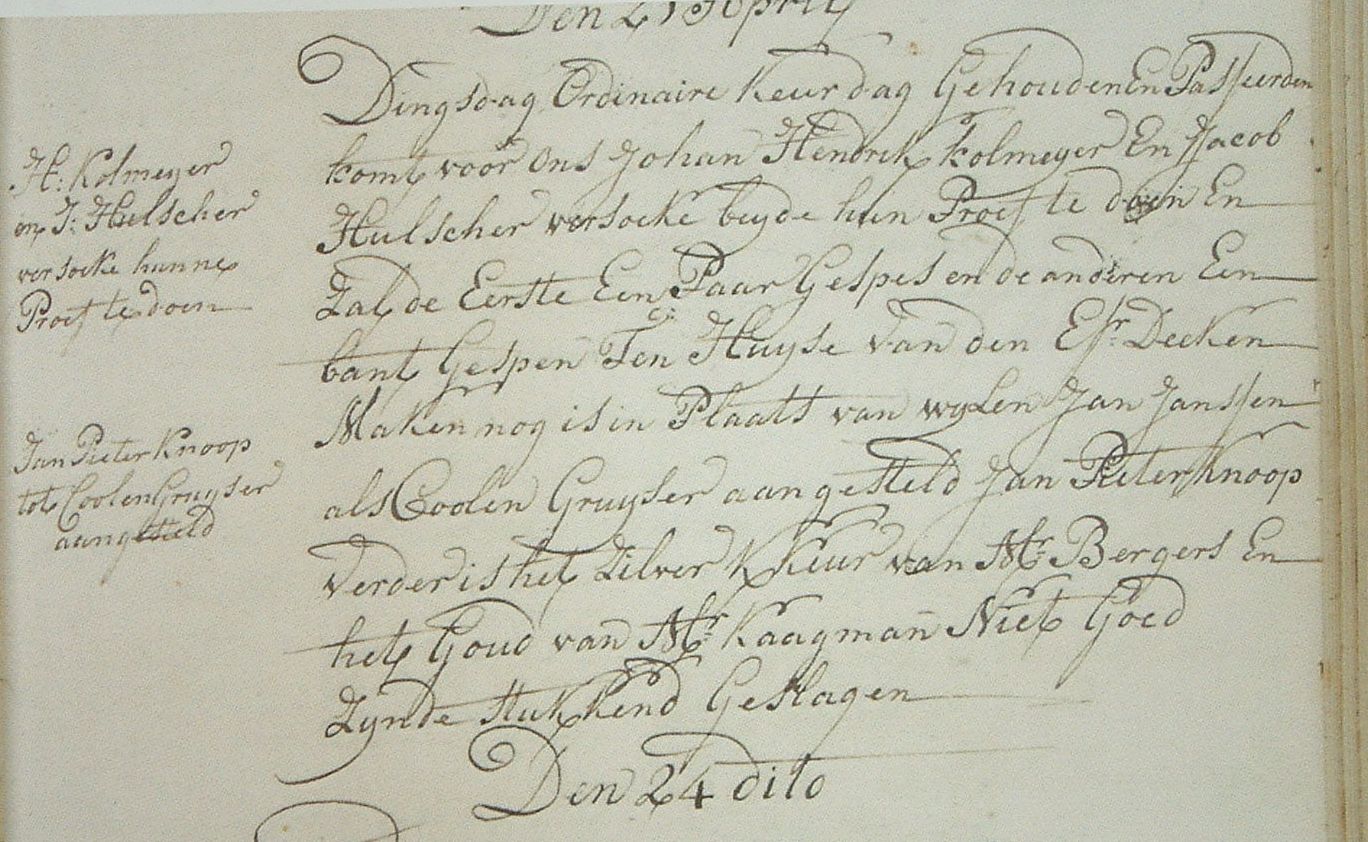 Den 21 April
Dingsdag Ordinaire Keurdag Gehouden En Passeerden
H: Kolmeyer
en J: Hulscher
versoeke hunne
Proef te doen
komt voor ons Johan Hendrik Kolmeyer En Jacob
Hulscher versoeke beyde hun Proef te doen En
Zal de Eerste Een Paar Gespes en de anderen Een
bant Gespen Ten Huyse van den Esr. Decken
Maken nog is in Plaats van wylen Jan Janssen
Jan Pieter Knoop
tot Coolen Gruyser
aangesteld
als Coolen Gruyser aangesteld Jan Pieter Knoop
Verder is het Zilver Keur van Mr. Bergers En
het Goud van Mr. Kaagman Niet Goed
Zynde Stukkend Geslagen
Den 24 dito